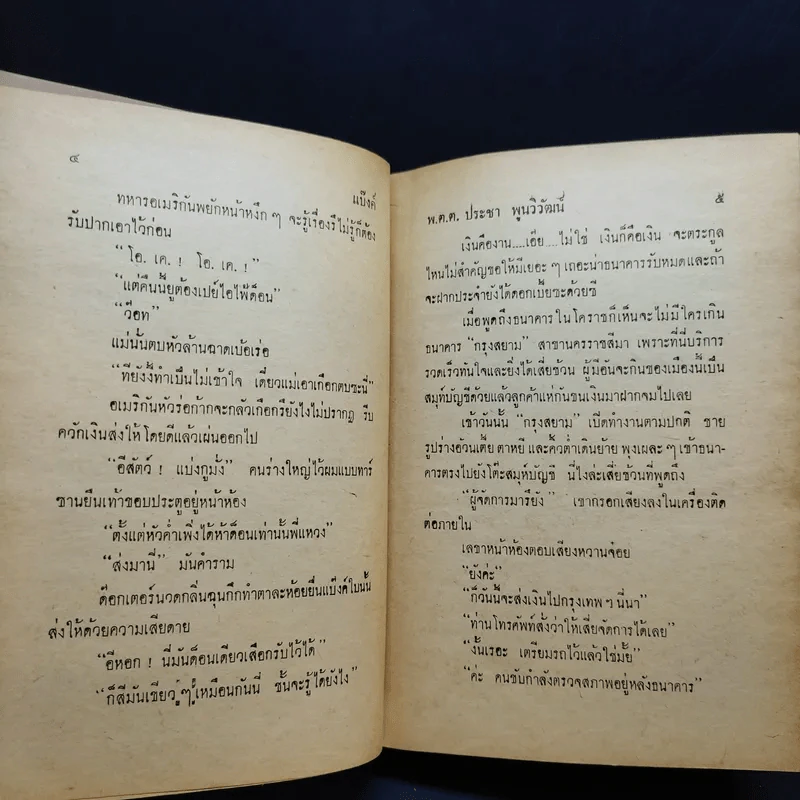 ๔
แบ๊งค์
ทหารอเมริกันพยักหน้าหงึก ๆ จะรู้เรื่องรึไม่รู้ก็ต้อง
รับปากเอาไว้ก่อน
“โอ. เค. ! โอ. เค. !”
“แต่คืนนี้ยูต้องเปย์ไอไฟ้ด็อน”
“ว๊อท”
แม่นั้นตบหัวล้านฉาดเบ้อเร่อ
“ทียังงี้ทำเป็นไม่เข้าใจ เดี๋ยวแม่เอาเกือกตบซะนี่”
อเมริกันหัวร่อก้ากจะกลัวเกือกรึยังไงไม่ปรากฏ รีบ
ควักเงินส่งให้โดยดีแล้วเผ่นออกไป
“อีสัตว์ ! แบ่งกูมั้ง” คนร่างใหญ่ไว้ผมแบบทาร์
ซานยืนเท้าขอบประตูอยู่หน้าห้อง
“ตั้งแต่หัวค่ำเพิ่งได้ห้าด็อนเท่านั้นพี่แหวง”
“ส่งมานี่” มันคำราม
ด๊อกเตอร์นวดกลิ่นฉุนกึกทำตาละห้อยยื่นแบ๊งค์ใบนั้น
ส่งให้ด้วยความเสียดาย
“อีหอก ! นี่มันด็อนเดียวเสือกรับไว้ได้”
“ก็สีมันเขียว ๆ เหมือนกันนี่ ชั้นจะรู้ได้ยังไง”
พ.ต.ต. ประชา พูนวิวัฒน์
๕
เงินคืองาน....เอ๊ย....ไม่ใช่ เงินก็คือเงิน จะตระกูล
ไหนไม่สำคัญขอให้มีเยอะ ๆ เถอะน่าธนาคารรับหมดและถ้า
จะฝากประจำยังได้ดอกเบี้ยซะด้วยซี
เมื่อพูดถึงธนาคารในโคราชก็เห็นจะไม่มีใครเกิน
ธนาคาร “กรุงสยาม” สาขานครราชสีมา เพราะที่นี่บริการ
รวดเร็วทันใจและยิ่งได้เสี่ยช้วน ผู้มีอันจะกินของเมืองนี้เป็น
สมุห์บัญชีด้วยแล้วลูกค้าแห่กันขนเงินมาฝากจมไปเลย
เช้าวันนั้น “กรุงสยาม” เปิดทำงานตามปกติ ชาย
รูปร่างอ้วนเตี้ย ตาหยี และคิ้วต่ำเดินย้าย พุงเผละ ๆ เข้าธนา-
คารตรงไปยังโต๊ะสมุห์บัญชี นี่ไงล่ะเสี่ยช้วนที่พูดถึง
“ผู้จัดการมารึยัง” เขากรอกเสียงลงในเครื่องติด
ต่อภายใน
เลขาหน้าห้องตอบเสียงหวานจ๋อย
“ยังค่ะ”
“ก็วันนี้จะส่งเงินไปกรุงเทพ ฯ นี่นา”
“ท่านโทรศัพท์สั่งว่าให้เสี่ยจัดการได้เลย”
“งั้นเรอะ เตรียมรถไว้แล้วใช่มั้ย”
“ค่ะ คนขับกำลังตรวจสภาพอยู่หลังธนาคาร”